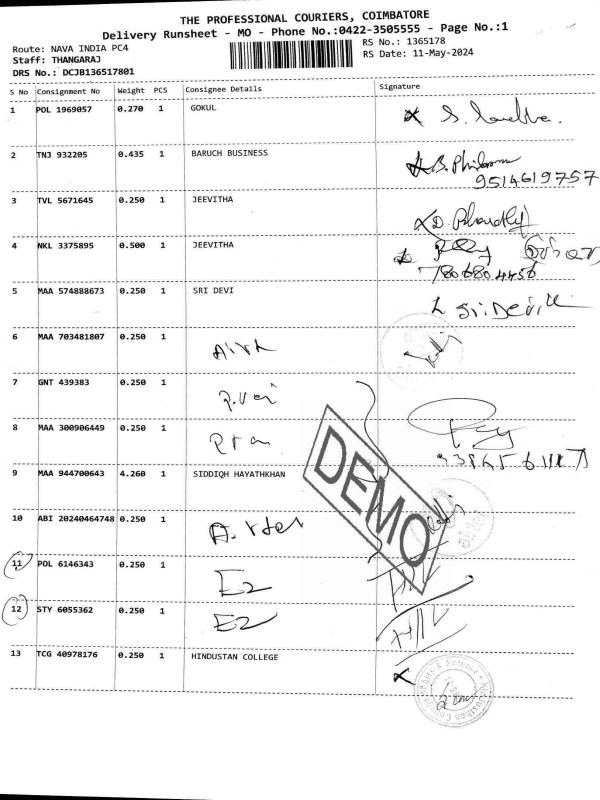 THE PROFESSIONAL COURIERS, COIMBATORE
Delivery Runsheet - MO - Phone No.:0422-3505555 - Page No.:1
Route: NAVA INDIA PC4
RS No.: 1365178
Staff: THANGARAJ
RS Date: 11-May-2024
DRS No.: DCJB136517801
S No Consignment No Weight PCS Consignee Details Signature
1 POL 1969057 0.270 1 GOKUL
2 TNJ 932205 0.435 1 BARUCH BUSINESS
9514619757
3 TVL 5671645 0.250 1 JEEVITHA
4 NKL 3375895 0.500 1 JEEVITHA
7806804456
5 MAA 574888673 0.250 1 SRI DEVI
6 MAA 703481807 0.250 1
7 GNT 439383 0.250 1
8 MAA 300906449 0.250 1
9 MAA 944700643 4.260 1 SIDDIQH HAYATHKHAN
DEMO
10 ABI 20240464748 0.250 1
11 POL 6146343 0.250 1 E2
12 STY 6055362 0.250 1 E2
13 TCG 40978176 0.250 1 HINDUSTAN COLLEGE